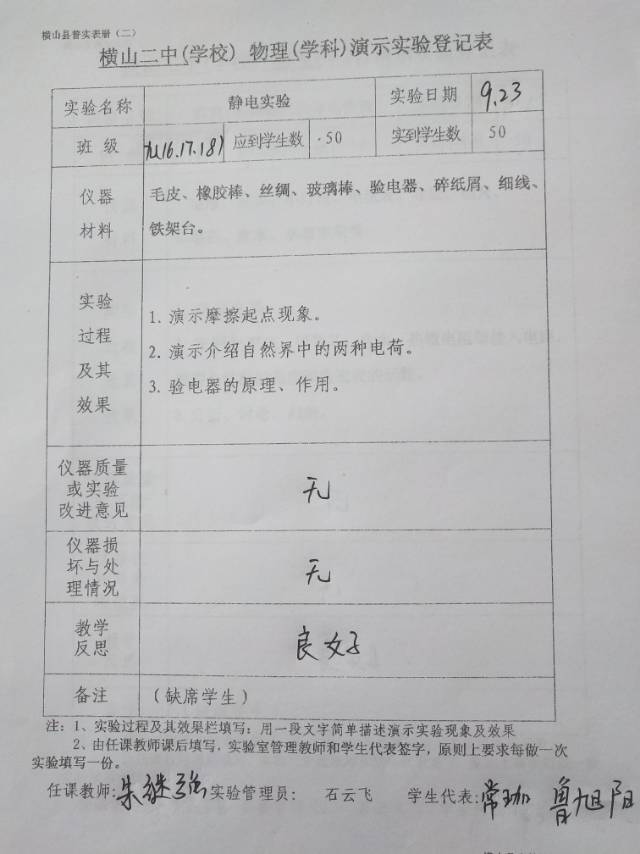 横山县普实表册（二）
横山二中(学校) 物理(学科)演示实验登记表
实验名称 静电实验 实验日期 9.23
班 级 九(16.17.18) 应到学生数 ·50 实到学生数 50
仪器 毛皮、橡胶棒、丝绸、玻璃棒、验电器、碎纸屑、细线、
材料 铁架台。
实验
过程
及其
效果
1. 演示摩擦起点现象。
2. 演示介绍自然界中的两种电荷。
3. 验电器的原理、作用。
仪器质量
或实验
改进意见
无
仪器损
坏与处
理情况
无
教学
反思
良好
备注 （缺席学生）
注：1、实验过程及其效果栏填写：用一段文字简单描述演示实验现象及效果
2、由任课教师课后填写，实验室管理教师和学生代表签字，原则上要求每做一次
实验填写一份。
任课教师:朱继强 实验管理员： 石云飞 学生代表:常珈 鲁旭阳